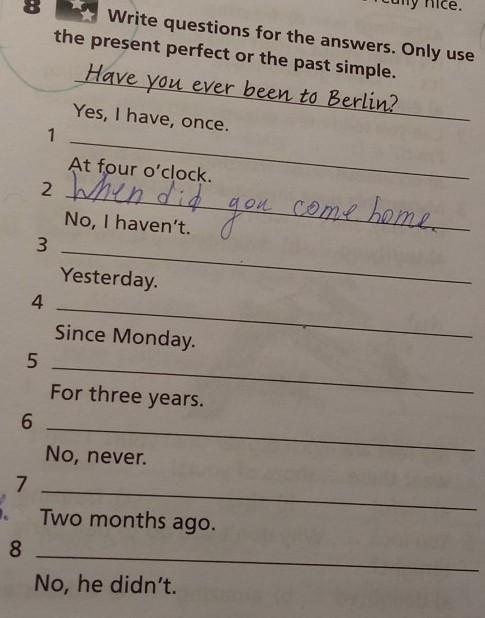 really nice.
8 Write questions for the answers. Only use
the present perfect or the past simple.
Have you ever been to Berlin?
Yes, I have, once.
1
At four o'clock.
2 When did you come home.
No, I haven't.
3
Yesterday.
4
Since Monday.
5
For three years.
6
No, never.
7
Two months ago.
8
No, he didn't.